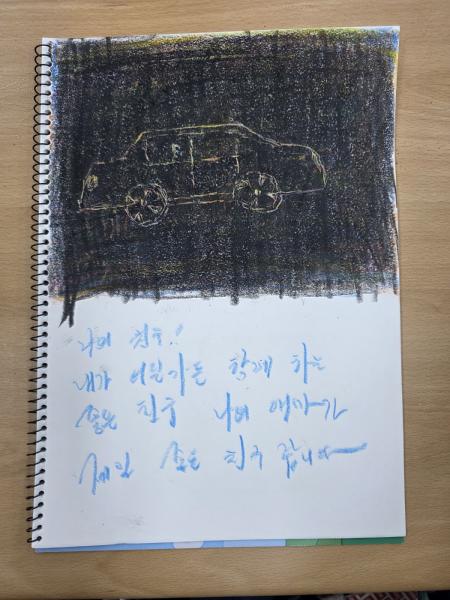 나의 친구!
내가 어딜가든 함께 하는
좋은 친구 나의 애마가
제일 좋은 친구 랍니다